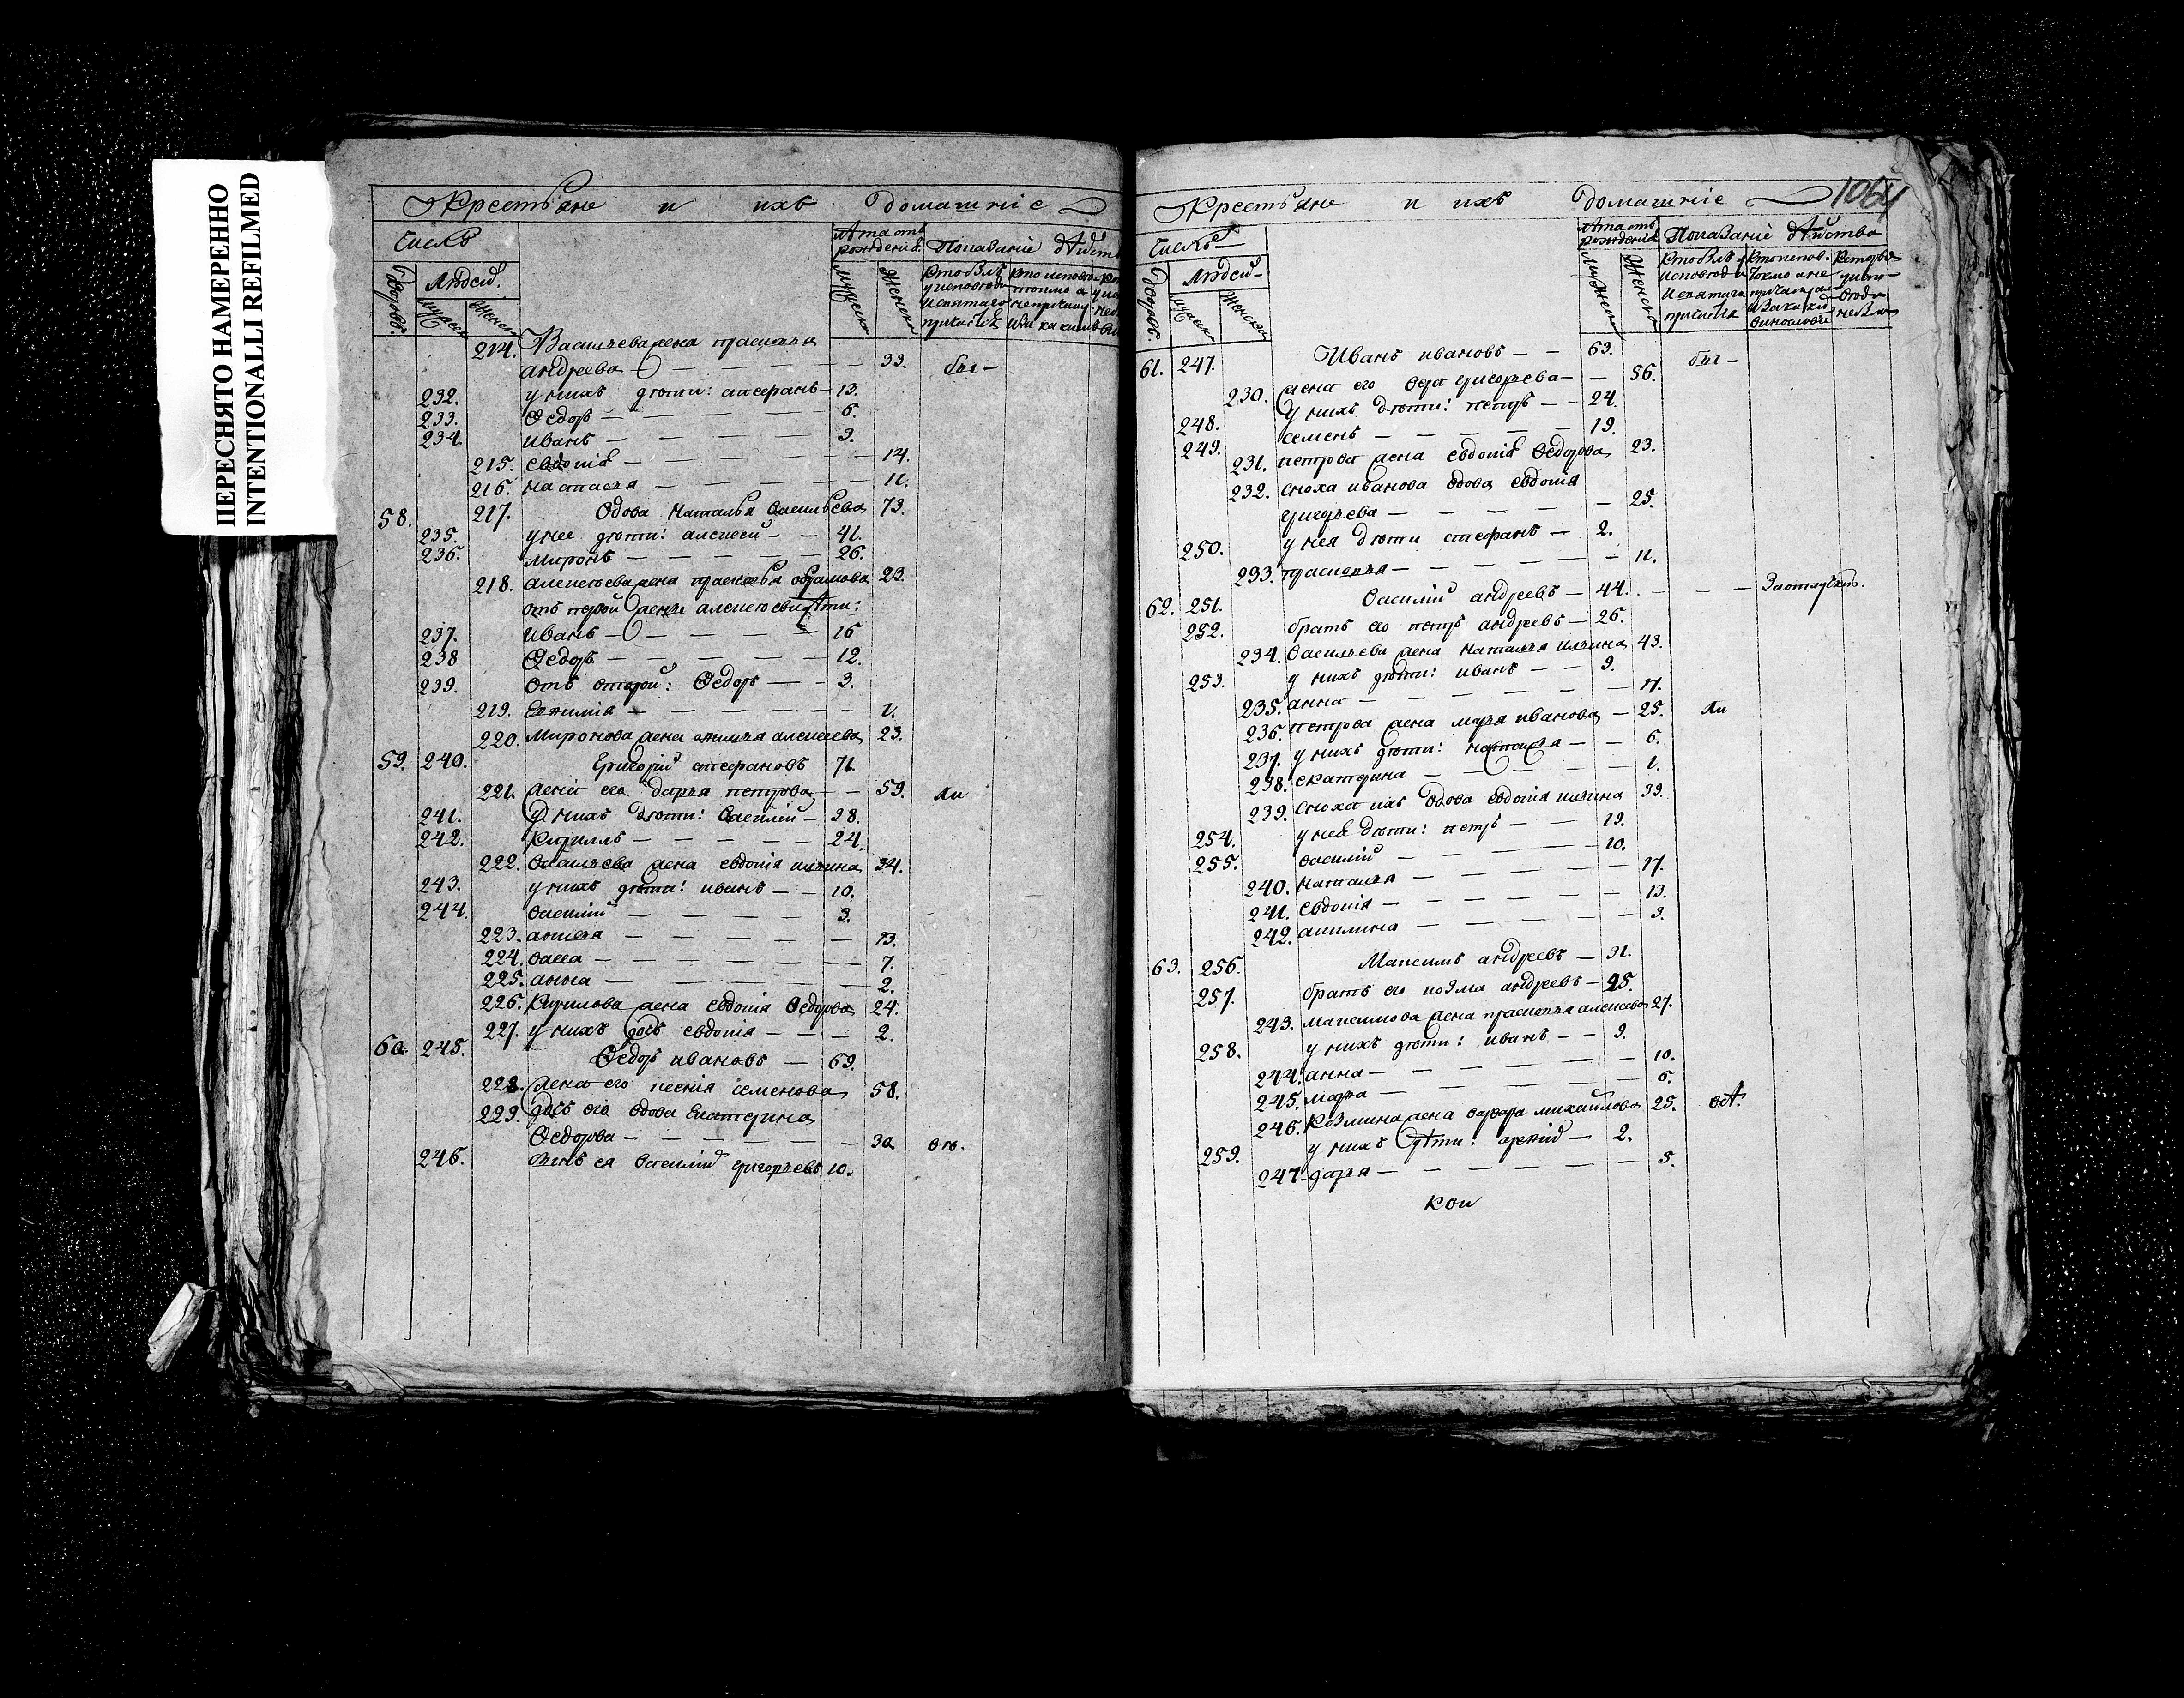 ПЕРЕСНЯТО НАМЕРЕННО
INTENTIONALLI REFILMED
Крестьяне и ихъ домашніе
Числѣ
Людей.
лѣта отъ рожденія. Показаніе дѣйст
214. Васильева жена прасковья
андреева — 33. бы-
232. у нихъ дѣти: стефанъ — 13.
233. Ѳедоръ — 6.
234. иванъ — 3.
215. евдокія — 14.
216. настасья — 11.
58. 217. вдова Наталья Васильева 73.
235. у нее дѣти: алексей — 41.
236. миронъ — 26.
218. алексеева жена прасковья абрамова 23.
отъ первой жены алексеевы дѣти:
237. иванъ — 16
238 Ѳедоръ — 12.
239. отъ второй: Ѳедоръ — 3.
219. — 1.
220. Миронова жена алексеева 23.
59. 240. Григорій стефановъ 71.
221. жена его дарья петрова — 59. ли
241. у нихъ дѣти: василій — 38.
242. Кирилъ — 24.
222. васильева жена евдокія ильина 34.
243. у нихъ дѣти: иванъ — 10.
244. василій — 3.
223. — 13.
224. васса — 7.
225. анна — 2.
226. Кирилова жена евдокія Ѳедорова 24.
227. у нихъ дочь евдокія — 2.
60 245. Ѳедоръ ивановъ — 69.
228. жена его ксенія семенова 58.
229. дочь его вдова Екатерина
Ѳедорова — 30
246. сынъ ея василій григорьевъ 10.
Крестьяне и ихъ домашніе 1064
Числѣ
Людей
лѣта отъ рожденія Показаніе дѣйства
61. 247. Иванъ ивановъ — 63. бы-
230. жена его григорьева — 56.
248. у нихъ дѣти: петръ — 24.
249. семенъ — 19.
231. петрова жена евдокія Ѳедорова 23.
232. сноха иванова вдова евдокія
— 25.
250. у нея дѣти стефанъ — 2.
233. прасковья — 11.
62. 251. Василій андреевъ — 44. — Заотлучкою.
252. братъ его петръ андреевъ — 26.
234. васильева жена наталья ильина 43.
253. у нихъ дѣти: иванъ — 9.
235. анна — 17.
236. петрова жена марья иванова — 25. ли
237. у нихъ дѣти: настасья — 6.
238. екатерина — 1.
239. сноха ихъ вдова евдокія ильина 39.
254. у нея дѣти: петръ — 19.
255. василій — 10.
240. наталья — 17.
241. евдокія — 13.
242. акилина — 3.
63. 256. Максимъ андреевъ — 31.
257. братъ его козма андреевъ — 25.
243. максимова жена прасковья алексеева 27.
258. у нихъ дѣти: иванъ — 9.
244. анна — 10.
245. марья — 6.
246. Козмина жена варвара михайлова 25.
259. у нихъ дѣти: — 2.
247 дарья — 5.
кои